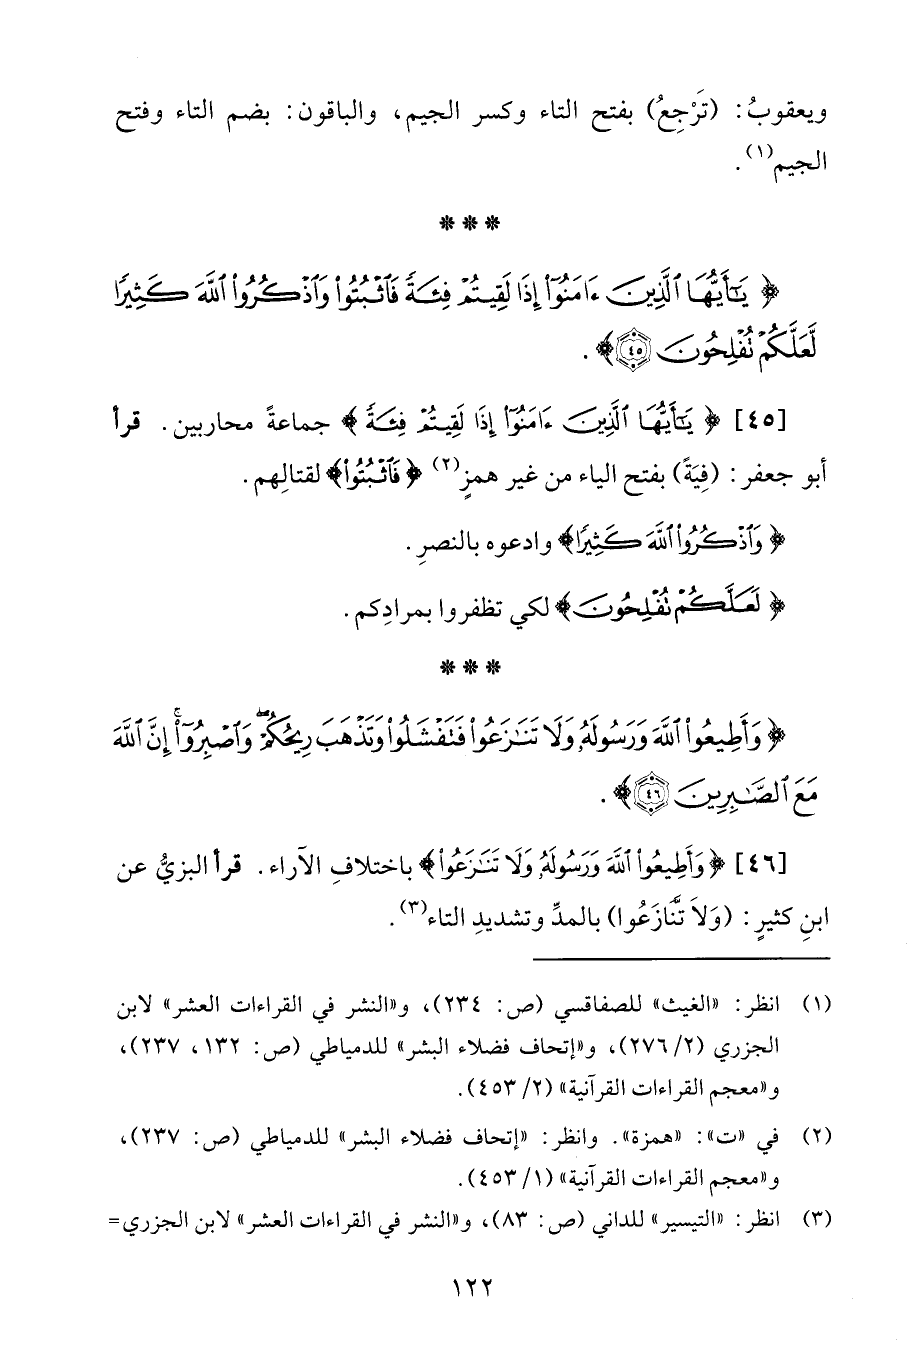 ويعقوبُ: (تَرْجِعُ) بفتح التاء وكسر الجيم، والباقون: بضم التاء وفتح
الجيم(١).
***
﴿ يَـٰٓأَيُّهَا ٱلَّذِينَ ءَامَنُوٓا۟ إِذَا لَقِيتُمْ فِئَةً فَٱثْبُتُوا۟ وَٱذْكُرُوا۟ ٱللَّهَ كَثِيرًا
لَّعَلَّكُمْ تُفْلِحُونَ ٤٥﴾ .
[٤٥] ﴿ يَـٰٓأَيُّهَا ٱلَّذِينَ ءَامَنُوٓا۟ إِذَا لَقِيتُمْ فِئَةً ﴾ جماعةً محاربين. قرأ
أبو جعفر: (فِيَةً) بفتح الياء من غير همزٍ(٢) ﴿ فَٱثْبُتُوا۟﴾ لقتالِهم.
﴿ وَٱذْكُرُوا۟ ٱللَّهَ كَثِيرًا﴾ وادعوه بالنصرِ.
﴿ لَعَلَّكُمْ تُفْلِحُونَ﴾ لكي تظفروا بمرادِكم.
***
﴿ وَأَطِيعُوا۟ ٱللَّهَ وَرَسُولَهُۥ وَلَا تَنَـٰزَعُوا۟ فَتَفْشَلُوا۟ وَتَذْهَبَ رِيحُكُمْ ۖ وَٱصْبِرُوٓا۟ ۚ إِنَّ ٱللَّهَ
مَعَ ٱلصَّـٰبِرِينَ ٤٦﴾ .
[٤٦] ﴿ وَأَطِيعُوا۟ ٱللَّهَ وَرَسُولَهُۥ وَلَا تَنَـٰزَعُوا۟﴾ باختلافِ الآراء. قرأ البزيُّ عن
ابنِ كثيرٍ: (وَلاَ تَّنَازَعُوا) بالمدِّ وتشديدِ التاء(٣).
(١) انظر: «الغيث» للصفاقسي (ص: ٢٣٤)، و«النشر في القراءات العشر» لابن
الجزري (٢/ ٢٧٦)، و«إتحاف فضلاء البشر» للدمياطي (ص: ١٣٢، ٢٣٧)،
و«معجم القراءات القرآنية» (٢/ ٤٥٣).
(٢) في «ت»: «همزة». وانظر: «إتحاف فضلاء البشر» للدمياطي (ص: ٢٣٧)،
و«معجم القراءات القرآنية» (١/ ٤٥٣).
(٣) انظر: «التيسير» للداني (ص: ٨٣)، و«النشر في القراءات العشر» لابن الجزري=
١٢٢